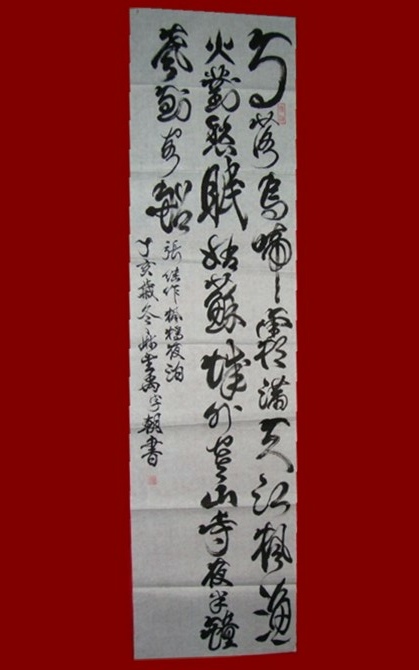 月落烏啼霜滿天江楓漁
火對愁眠姑蘇城外寒山寺夜半鐘
聲到客船
張继作楓橋夜泊
丁亥歲冬朝書